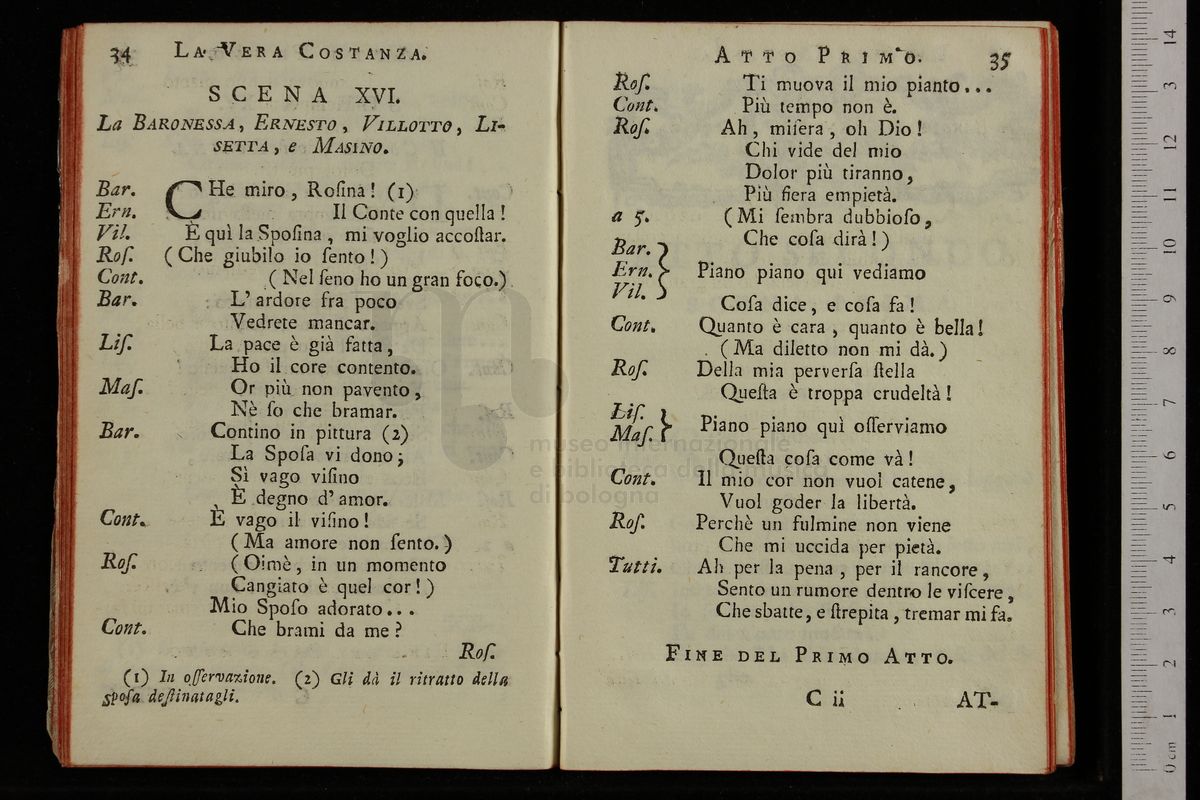 34 LA VERA COSTANZA.
SCENA XVI.
La BARONESSA, ERNESTO, VILLOTTO, LI-
SETTA, e MASINO.
Bar. CHe miro, Roſina! (1)
Ern. Il Conte con quella!
Vil. È quì la Spoſina, mi voglio accoſtar.
Roſ. (Che giubilo io ſento!)
Cont. (Nel ſeno ho un gran foco.)
Bar. L'ardore fra poco
Vedrete mancar.
Liſ. La pace è già fatta,
Ho il core contento.
Maſ. Or più non pavento,
Nè ſo che bramar.
Bar. Contino in pittura (2)
La Spoſa vi dono;
Sì vago viſino
È degno d'amor.
Cont. È vago il viſino!
(Ma amore non ſento.)
Roſ. (Oimè, in un momento
Cangiato è quel cor!)
Mio Spoſo adorato...
Cont. Che brami da me?
Roſ.
(1) In oſſervazione. (2) Gli dà il ritratto della
ſpoſa deſtinatagli.
ATTO PRIMO. 35
Roſ. Ti muova il mio pianto...
Cont. Più tempo non è.
Roſ. Ah, miſera, oh Dio!
Chi vide del mio
Dolor più tiranno,
Più fiera empietà.
a 5. (Mi ſembra dubbioſo,
Che coſa dirà!)
Bar.
Ern. Piano piano qui vediamo
Vil.
Coſa dice, e coſa fa!
Cont. Quanto è cara, quanto è bella!
(Ma diletto non mi dà.)
Roſ. Della mia perverſa ſtella
Queſta è troppa crudeltà!
Liſ.
Maſ. Piano piano quì oſſerviamo
Queſta coſa come và!
Cont. Il mio cor non vuol catene,
Vuol goder la libertà.
Roſ. Perchè un fulmine non viene
Che mi uccida per pietà.
Tutti. Ah per la pena, per il rancore,
Sento un rumore dentro le viſcere,
Che sbatte, e ſtrepita, tremar mi fa.
FINE DEL PRIMO ATTO.
C ii AT-
museo internazionale
e biblioteca della musica
di bologna
0 cm 1 2 3 4 5 6 7 8 9 10 11 12 13 14